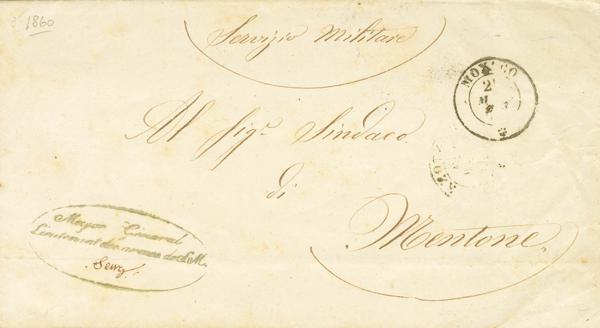 1860
Servizio Militare
MONACO
2
Al Sigr. Sindaco
di
Mentone
Major General
Lieutenant des armes de S.M.